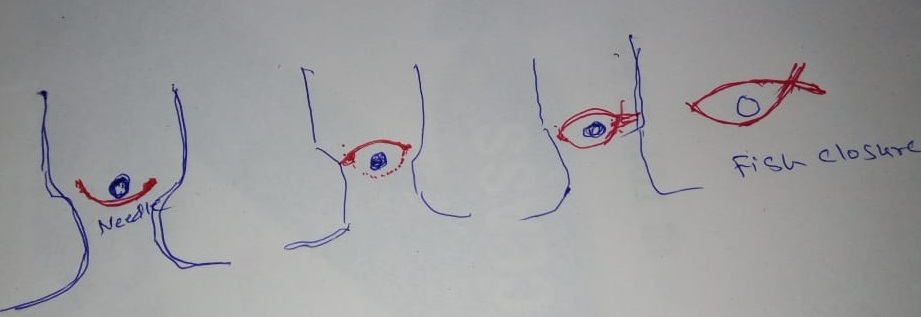 Needle
Fish closure